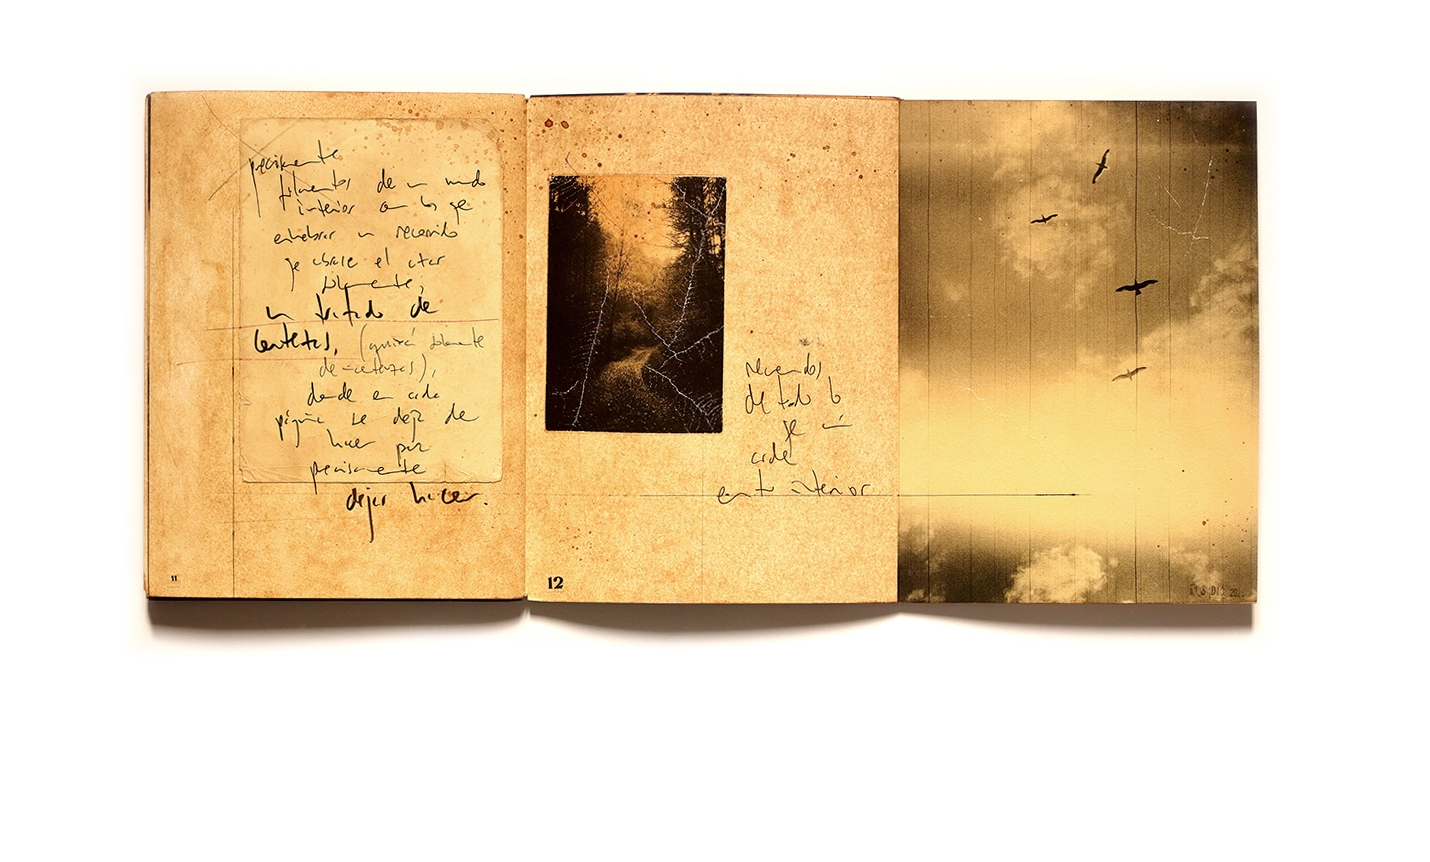 precisamente
filamentos de un mundo
interior con los que
enhebrar un recorrido
que abrace el estar
solamente,
un tratado de
certezas, (quizá solamente
de-certezas),
donde en cada
página se deja de
hacer para
precisamente
dejar hacer.
11
recuerdos,
de todo lo
que aún
arde
en tu interior
12